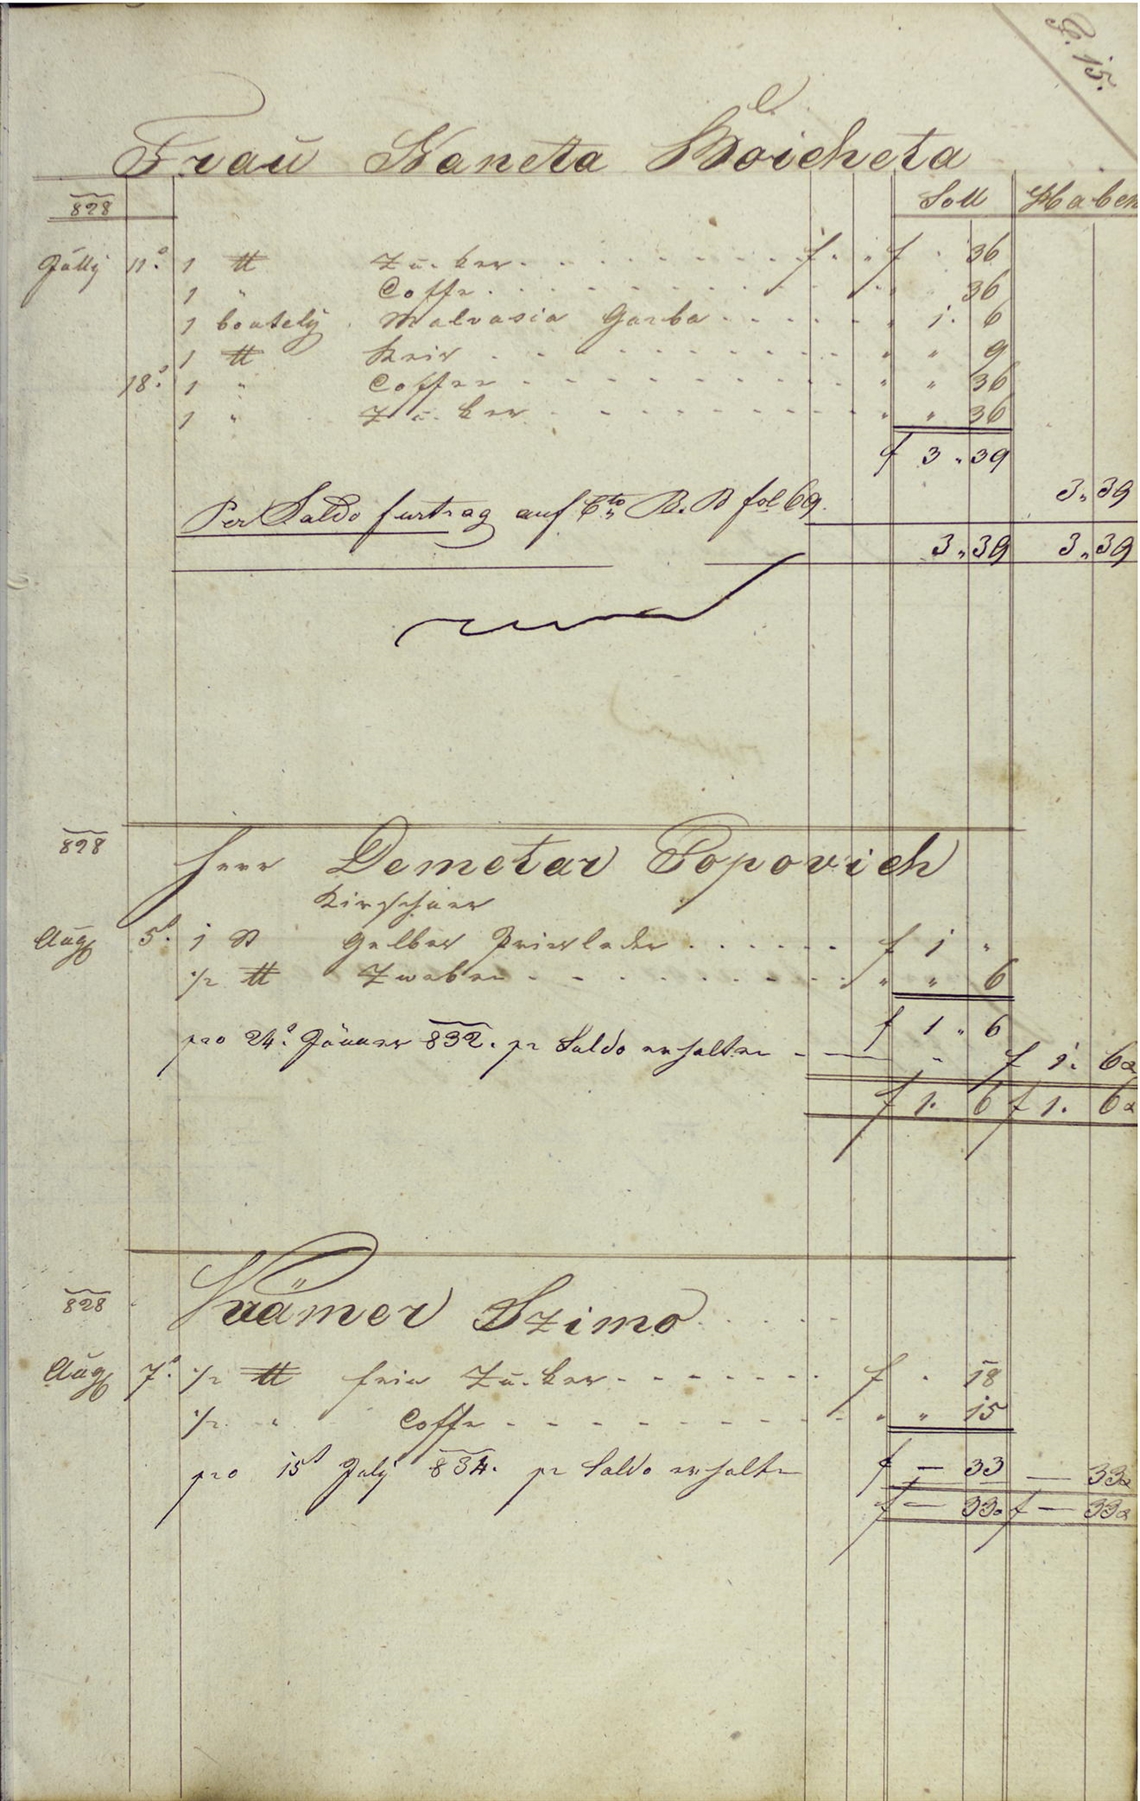 P. 15.
Frau Naneta Boicheta
828 Soll Haben
Jully 11º. 1 ℔ Zucker . . . . . . . . f . " f . 36
1 " Coffe . . . . . . . . " 36
1 boutely Malvasia Garba . . . . . " 1. 6
1 ℔ Reis . . . . . . . . " " 9
18º. 1 " Coffee . . . . . . . . " " 36
1 " Zucker . . . . . . . . " " 36
f 3 . 39
Per Saldo furtrag auf Cto B. B fol 69 3 " 39
3 " 39 3 " 39
828
Herr Demetar Popovich
Kirschner
Aug 5º. 1 St Gelber . . . . . . f 1 "
1/2 ℔ Zweben . . . . . . . " " 6
f 1 " 6
pro 24º. Jänner 832. pr Saldo erhalten - f 1. 6
f 1. 6 f 1. 6
828 Krämer Szimo . . . . .
Aug 7º. 1/2 ℔ fein Zucker . . . . . . f . 18
1/2 " Coffe . . . . . . . . " " 15
pro 15º July 834. pr Saldo erhalten f — 33 — 33
f — 33 f — 33